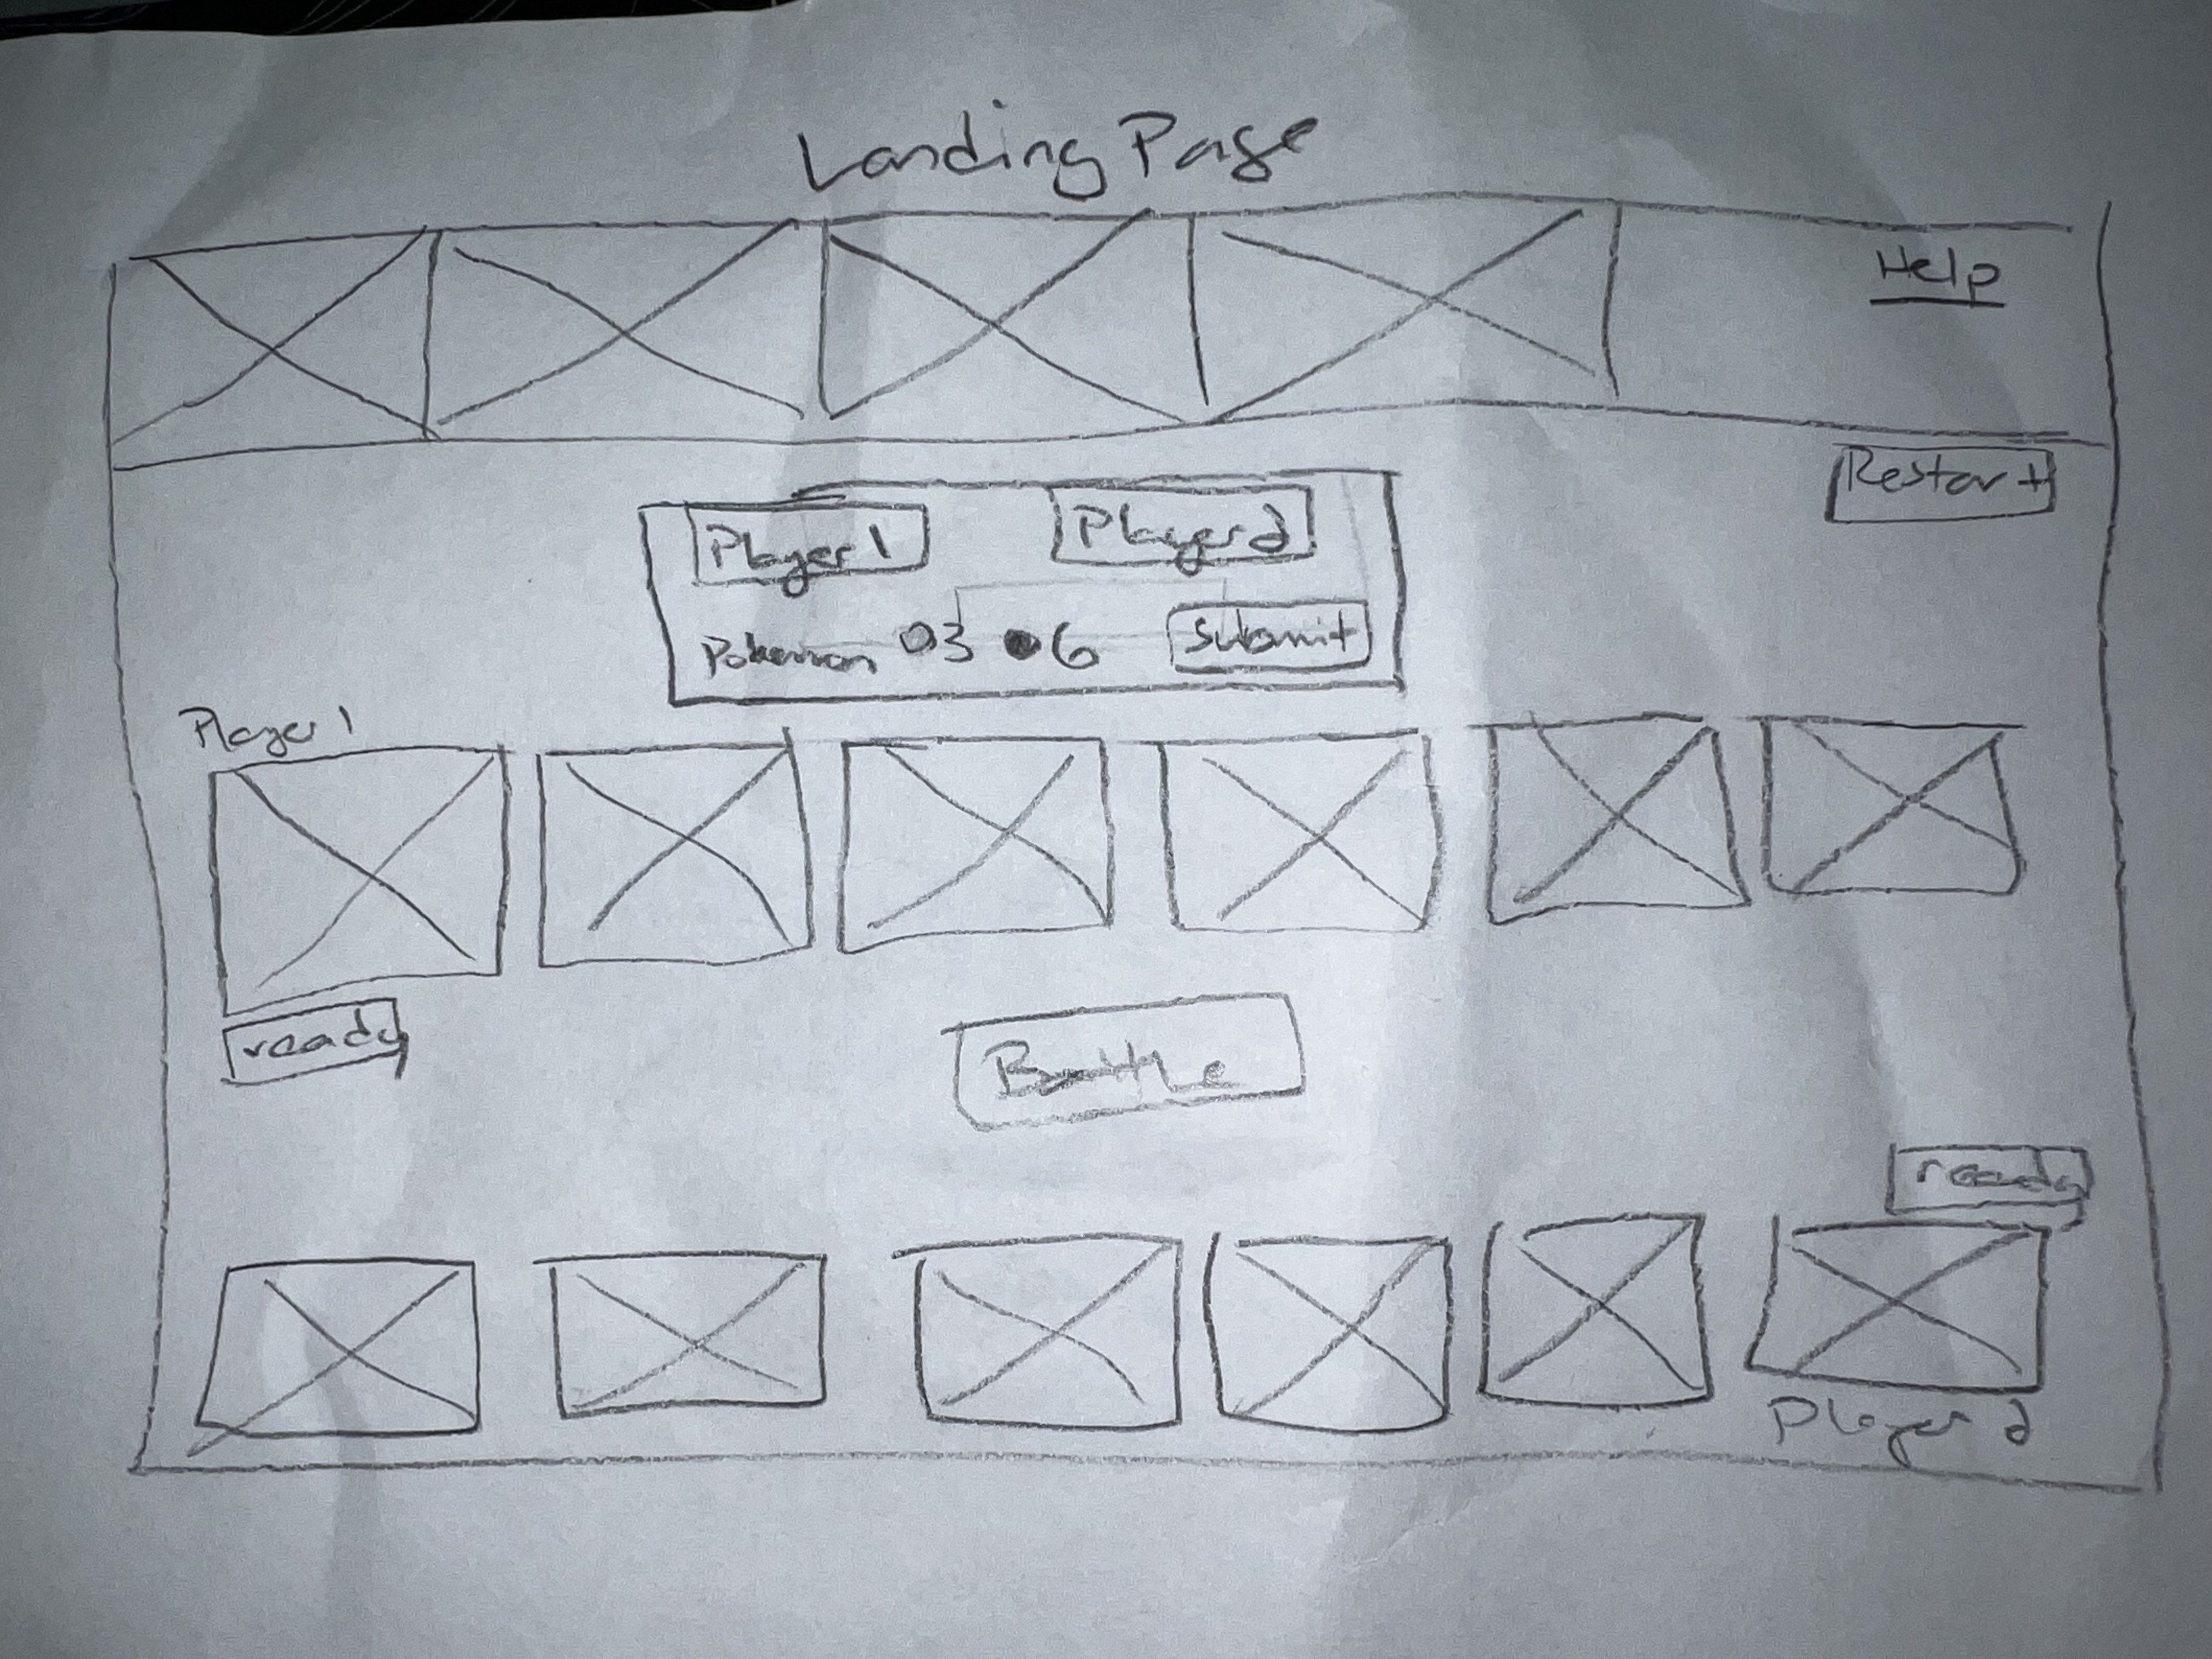 Landing Page
Help
Restart
Player 1 Player 2
Pokemon 3 6 Submit
Player 1
ready
Battle
ready
Player 2